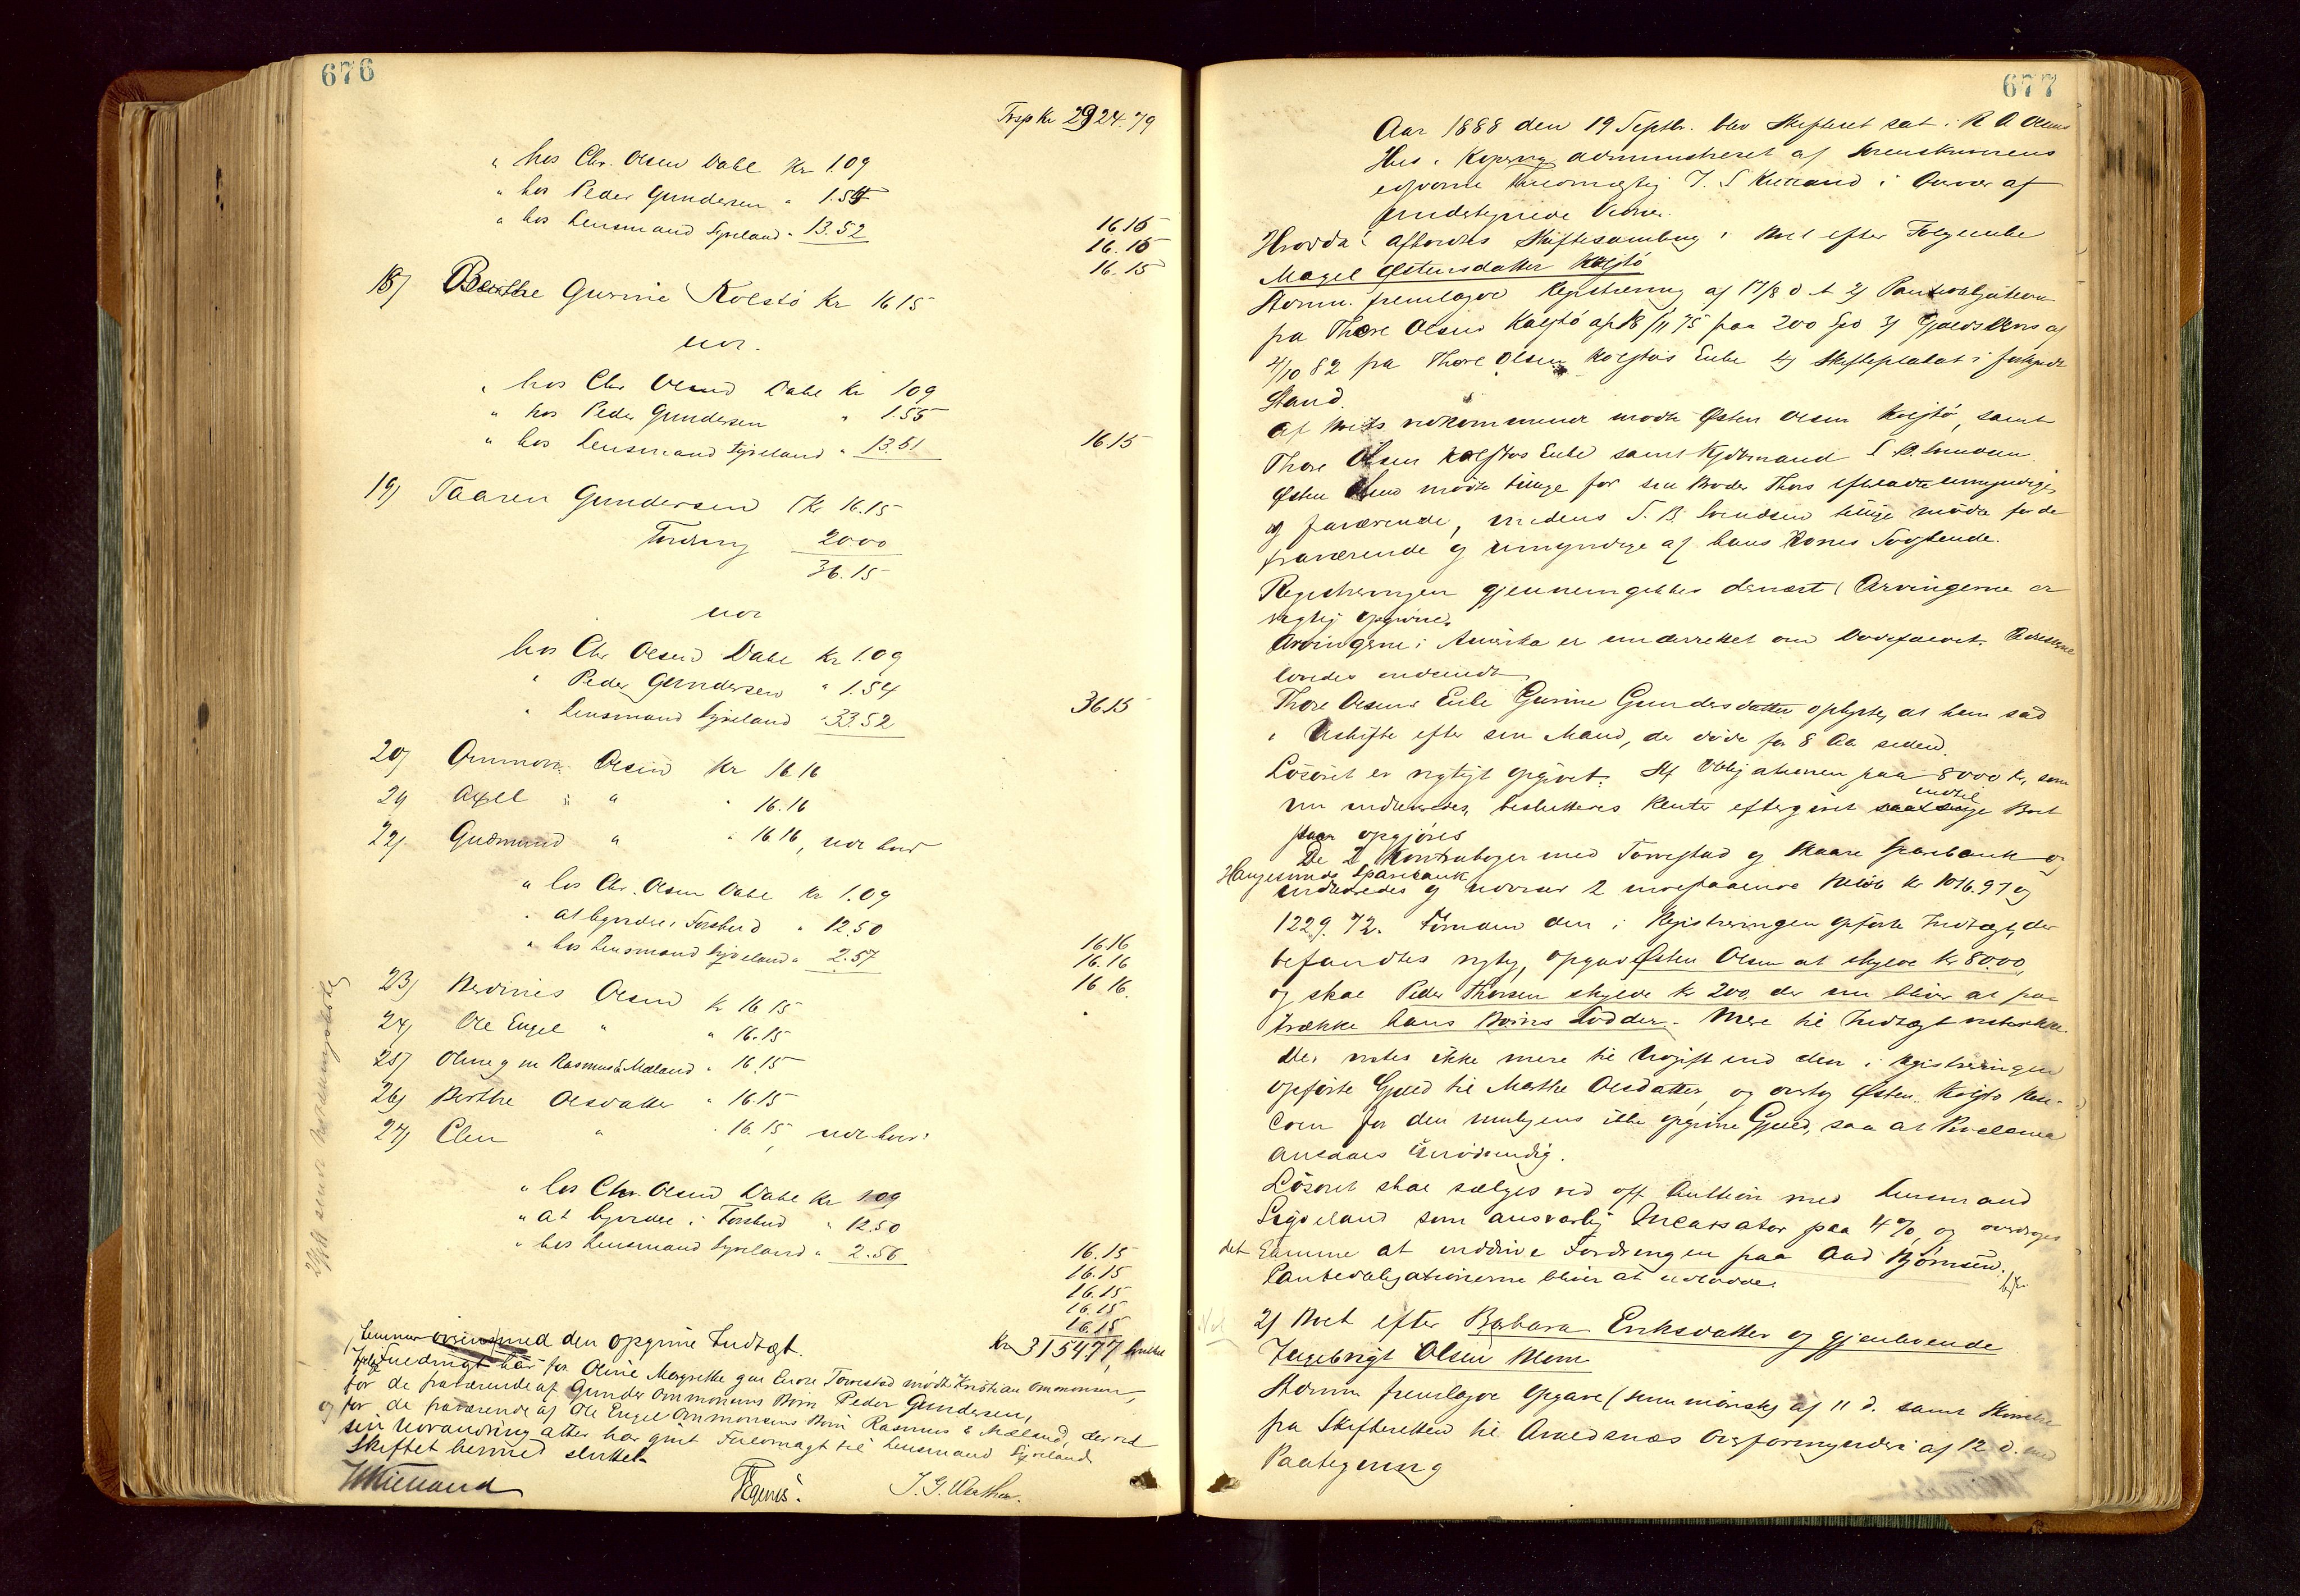 676
Trsp Kr 2924.79
" hos Chr. Olsen Dahl Kr 1.09
" hos Peder Gundersen " 1.54
" hos Lensmand Syseland " 13.52
16 15
16.15
16.15
18) Berthe Gurine Kolstö Kr 16 15
nor.
" hos Chr Olsen Dahl Kr 109
" hos Peder Gundersen " 1.55
" hos Lensmand Syseland " 13.51
16.15
19) Taaren Gundersen Kr 16.15
Fordring 20.00
36.15
nor
hos Chr Olsen Dahl Kr 1.09
" Peder Gundersen " 1.54
" Lensmand Sysland " 33.52
36 15
20) Ommon Olsen Kr 16 16
21) Axel " " " 16.16
22) Gudmund " " 16 16, nor hos
" hos Chr. Olsen Dahl Kr 1.09
" at byrdes i Forskud " 12.50
" hos Lensmand Sysland " 2.57
16 16
16.16
16 16.
23) Berdines Olsen Kr 16 15
24) Ole Engel " " 16.15
25) Oline g m Rasmus E Mæland " 16.15
26) Berthe Olsdatter " 16.15
27) Elen " " 16.15, nor hos:
" hos Chr. Olsen Dahl Kr 1.09
" at byrdes i Forskud " 12.50
" hos Lensmand Sysland " 2.56
16.15
16.15
16.15
16.15
16.15
Kr 3154 77, hvilket
stemmer med den opgivne Indtægt.
Ifølge Fuldmagt har for Oline Margrethe g m Enore Torvestad mødt Kristian Ommonsen,
for de fraværende af Gunder Ommonsens Börn Peder Gundersen,
og for de fraværende af Ole Engel Ommonsens Börn Rasmus E Mæland, der ved
sin Udvandring atter har givet Fuldmagt til Lensmand Sysland
Skiftet hermed sluttet
Kielland J. G. Wathne.
677
Aar 1888 den 19 Septbr. blev Skifteret sat i R O Olsens
Hus i Kopervig administreret af Sorenskriverens
edsvorne Fuldmægtig J. S Kielland i Overvær af
undertegnede Vidner.
Hvorda: afholdtes Skiftesamling i Boet efter Følgende
Magel Østensdatter Kolstö
Admin. fremlagde Registrering af 17/8 d A 2) Pantobligation
fra Thore Olsen Kolstö af 18/11 75 paa 200 Spd 3) Gjældsbevis af
4/10 82 fra Thore Olsen Kolstös Enke 4) Skifteplakat i forkyndt
Stand.
Af Boets vedkommende mødte Østen Olsen Kolstö, samt
Thore Olsen Kolstös Enke samt Kjøbmand S B. Svendsen.
Østen Olsen mødte tillige for sin Broder Thors efterladte umyndige
og fraværende, medens S. B. Svendsen tillige mødte for de
fraværende og umyndige af hans Kones Södskende.
Registreringen gjennemgikkes dernæst (Arvingerne er
rigtig opgivne.
Arvingerne i Amerika er underrettet om Dødsfaldet. Adresserne
lovedes indsendt
Thore Olsens Enke Gurine Gundersdatter oplyste, at hun sad
i Uskifte efter sin Mand, der døde for 8 Aar siden.
Lösöret er rigtigt opgivet. Af Obligationen paa 8000 Kr, som
nu inddroges, besluttedes Renter eftergivet indtil Boet
opgjøres
De 2 Kontrabøger med Torvestad og Skaare Sparebank og
Haugesunds Sparebank
og udviser 2 indestaaende Beløb Kr 1016.97 og
1229 72. Foruden den i Registreringen opførte Indtægt, der
befandtes rigtig, opgav Østen Olsen at skylde Kr 80.00,
og skal Peder Thorsen skylde Kr 200. der nu bliver at fra-
trække hans Börns Lodder. Mere til Indtægt vistes ikke.
Der vistes ikke mere til Udgift end den i Registreringen
opførte Gjæld til Marthe Olsdatter, og overtog Østen Kolstö
for den muligens ikke opgivne Gjæld, saa at Proclama
ansaaes unödvendig.
Lösöret skal sælges ved off Auktion med Lensmand
Sysseland som ansvarlig Incassator paa 4 %, og overdroges
det samme at inddrive Fordringen paa Aad Bjørnsen.
Pantobligationerne bliver at udlodde.
2) Boet efter Barbara Eriksdatter og gjenlevende
Ingebrigt Olsen Mem
Admin fremlagde Opgave (summarisk) af 11 d. samt Skrivelse
fra Skifteretten til Avaldsnæs Overformynderi af 12 d. med
Paategning